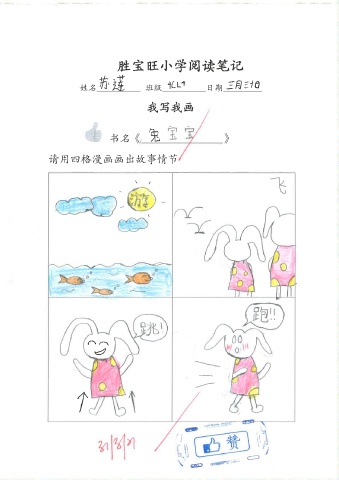 胜宝旺小学阅读笔记
姓名 苏莲 班级 日期 三月三十日
我写我画
书名《 兔宝宝 》
请用四格漫画画出故事情节
游
飞
跳!
跑!!
31/3/21
赞